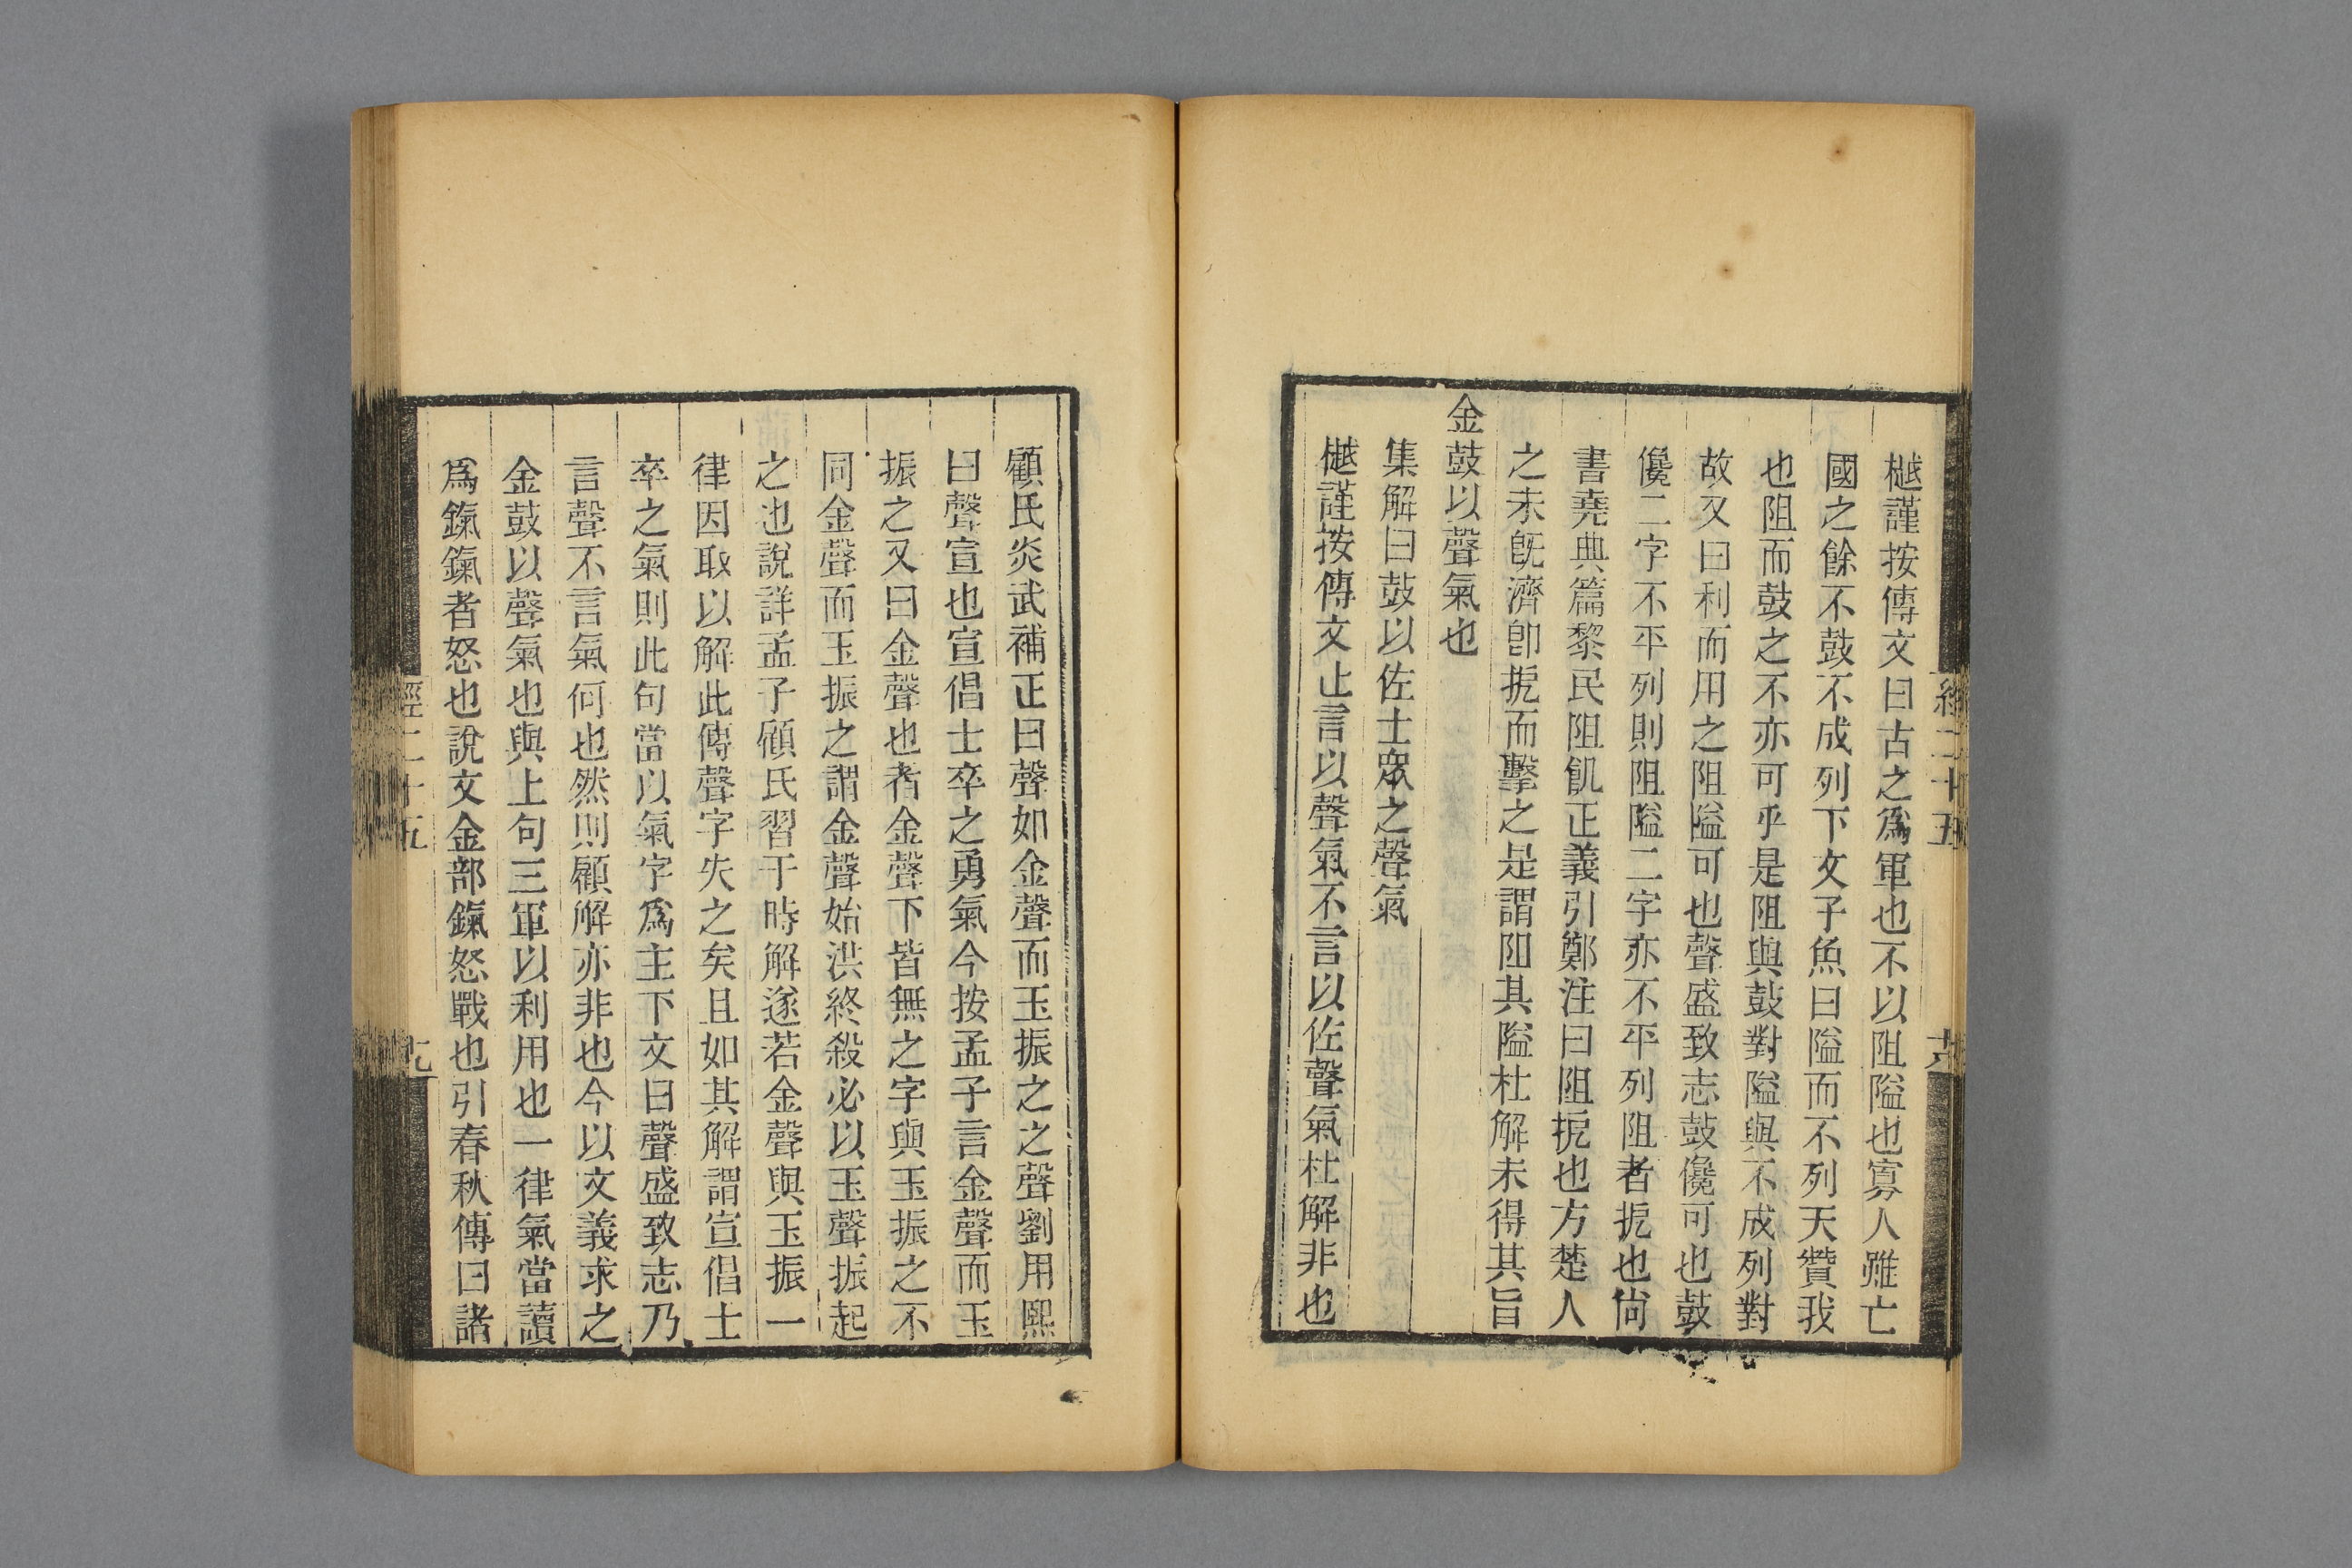 樾謹按傳文曰古之爲軍也不以阻隘也寡人雖亡
國之餘不鼓不成列下文子魚曰隘而不列天贊我
也阻而鼓之不亦可乎是阻與鼓對隘與不成列對
故又曰利而用之阻隘可也聲盛致志鼓儳可也鼓
儳二字不平列則阻隘二字亦不平列阻者扼也尙
書堯典篇黎民阻飢正義引鄭注曰阻扼也方楚人
之未旣濟卽扼而擊之是謂阻其隘杜解未得其旨
金鼓以聲氣也
集解曰鼓以佐士眾之聲氣
樾謹按傳文止言以聲氣不言以佐聲氣杜解非也
經二十五
六
顧氏炎武補正曰聲如金聲而玉振之之聲劉用熙
曰聲宣也宣倡士卒之勇氣今按孟子言金聲而玉
振之又曰金聲也者金聲下皆無之字與玉振之不
同金聲而玉振之謂金聲始洪終殺必以玉聲振起
之也說詳孟子顧氏習于時解遂若金聲與玉振一
律因取以解此傳聲字失之矣且如其解謂宣倡士
卒之氣則此句當以氣字爲主下文曰聲盛致志乃
言聲不言氣何也然則顧解亦非也今以文義求之
金鼓以聲氣也與上句三軍以利用也一律氣當讀
爲鎎鎎者怒也說文金部鎎怒戰也引春秋傳曰諸
經二十五